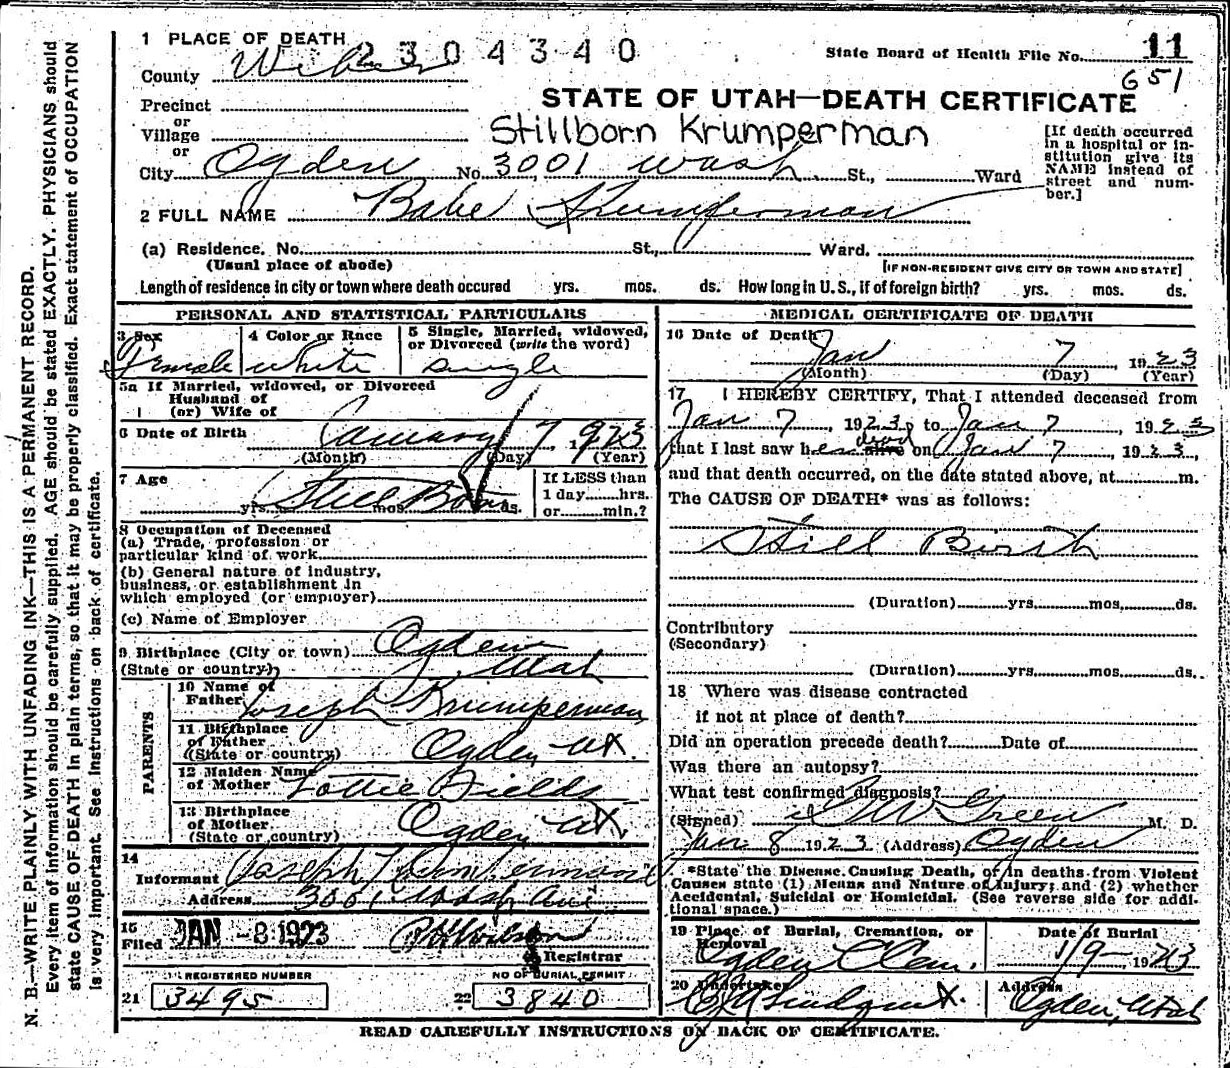 N. B.—WRITE PLAINLY WITH UNFADING INK—THIS IS A PERMANENT RECORD.
Every item of information should be carefully supplied. AGE should be stated EXACTLY. PHYSICIANS should
state CAUSE OF DEATH in plain terms, so that it may be properly classified. Exact statement of OCCUPATION
is very important. See instructions on back of certificate.
1 PLACE OF DEATH 2304340
State Board of Health File No. 11
651
County Weber
STATE OF UTAH—DEATH CERTIFICATE
Precinct
or
Village
or
Stillborn Krumperman
[If death occurred
in a hospital or in-
stitution give its
NAME instead of
street and num-
ber.]
City Ogden No. 3001 Wash. St., Ward
2 FULL NAME Babe Krumperman
(a) Residence. No. St., Ward.
(Usual place of abode) [IF NON-RESIDENT GIVE CITY OR TOWN AND STATE]
Length of residence in city or town where death occured yrs. mos. ds. How long in U. S., if of foreign birth? yrs. mos. ds.
PERSONAL AND STATISTICAL PARTICULARS
3 Sex
Female
4 Color or Race
white
5 Single, Married, widowed,
or Divorced (write the word)
single
5a If Married, widowed, or Divorced
Husband of
(or) Wife of
6 Date of Birth January 7 1923
(Month) (Day) (Year)
7 Age Still Born
yrs. mos. ds.
If LESS than
1 day hrs.
or min.?
8 Occupation of Deceased
(a) Trade, profession or
particular kind of work
(b) General nature of industry,
business, or establishment in
which employed (or employer)
(c) Name of Employer
9 Birthplace (City or town) Ogden
(State or country) Utah
PARENTS
10 Name of
Father Joseph Krumperman
11 Birthplace
of Father
(State or country) Ogden Ut
12 Maiden Name
of Mother Lottie Fields
13 Birthplace
of Mother
(State or country) Ogden Ut
14
Informant Joseph
Address 3001 Wash Ave
15
Filed JAN -8 1923
Registrar
REGISTERED NUMBER
21 3495
NO OF BURIAL PERMIT
22 3840
MEDICAL CERTIFICATE OF DEATH
16 Date of Death
Jan 7 1923
(Month) (Day) (Year)
17 I HEREBY CERTIFY, That I attended deceased from
Jan 7, 1923, to Jan 7, 1923
that I last saw her alive dead on Jan 7, 1923,
and that death occurred, on the date stated above, at m.
The CAUSE OF DEATH* was as follows:
Still Birth
(Duration) yrs. mos. ds.
Contributory
(Secondary)
(Duration) yrs. mos. ds.
18 Where was disease contracted
if not at place of death?
Did an operation precede death? Date of
Was there an autopsy?
What test confirmed diagnosis?
(Signed) Green M. D.
Jan. 8 1923 (Address) Ogden
*State the Disease Causing Death, or in deaths from Violent
Causes state (1) Means and Nature of Injury; and (2) whether
Accidental, Suicidal or Homicidal. (See reverse side for addi-
tional space.)
19 Place of Burial, Cremation, or
Removal
Ogden Cem.
Date of Burial
1/9— 1923
20 Undertaker
Address
Ogden, Utah
READ CAREFULLY INSTRUCTIONS ON BACK OF CERTIFICATE.